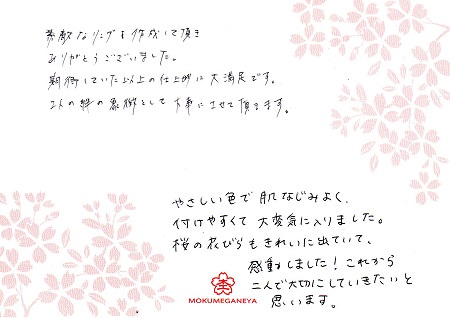 素敵なリングを作成して頂き
ありがとうございました。
期待していた以上の仕上りに大満足です。
2人の絆の象徴として大事にさせて頂きます。
やさしい色で肌なじみよく、
付けやすくて大変気に入りました。
桜の花びらもきれいに出ていて、
感動しました！これから
二人で大切にしていきたいと
思います。
MOKUMEGANEYA